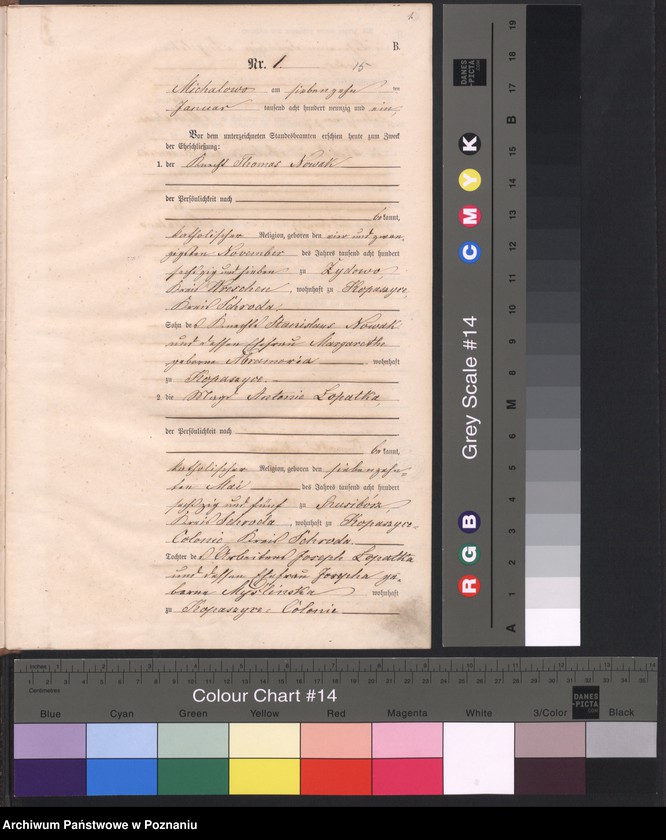 B.
Nr. 1.
15
Michalowo am siebenzehn ten
Januar tausend acht hundert neunzig und ein,
Vor dem unterzeichneten Standesbeamten erschien heute zum Zweck
der Eheschließung:
1. der Knecht Thomas Nowak
der Persönlichkeit nach
be kannt,
katholischer Religion, geboren den vier und zwan-
zigsten November des Jahres tausend acht hundert
sechszig und sieben zu Zydowo,
Kreis Wreschen, wohnhaft zu Kopaszyce,
Kreis Schroda,
Sohn des Knechts Stanislaus Nowak
und dessen Ehefrau Margaretha
geborne wohnhaft
zu Kopaszyce.
2. die Magd Antonie Lopatka,
der Persönlichkeit nach
be kannt,
katholischer Religion, geboren den siebenzehn-
ten Mai des Jahres tausend acht hundert
sechszig und fünf zu
Kreis Schroda, wohnhaft zu Kopaszyce-
Colonie Kreis Schroda.
Tochter des Arbeiters Joseph Lopatka
und dessen Ehefrau Josepha ge-
borne Myslinska wohnhaft
zu Kopaszyce-Colonie
Grey Scale #14
DANES
PICTA
.COM
R G B C M Y K
A 1 2 3 4 5 6 M 8 9 10 11 12 13 14 15 B 17 18 19
Inches 1 2 3 4 5 6 7 8 9 10 11 12 13 14
Centimetres
Colour Chart #14
DANES
PICTA
.COM
Blue Cyan Green Yellow Red Magenta White 3/Color Black
Archiwum Państwowe w Poznaniu